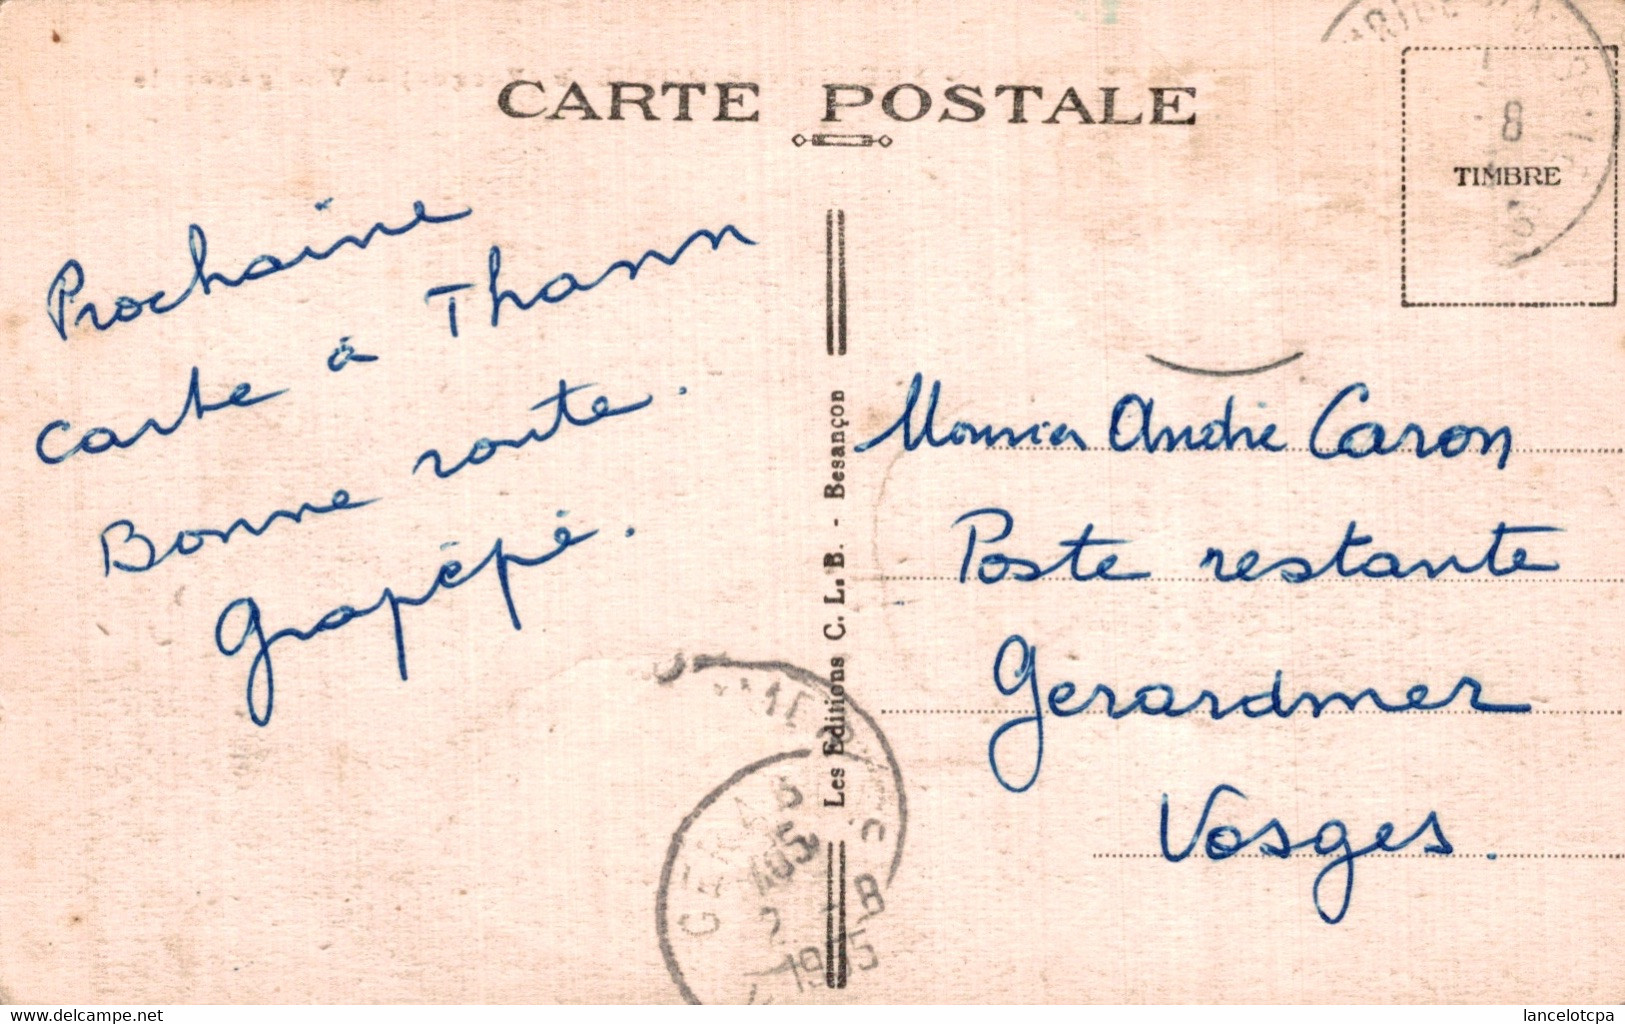 CARTE POSTALE
TIMBRE
8
Prochaine
carte à Thann
Bonne route.
Grapépé.
Les Editions C. L. B. - Besançon
Monsieur André Caron
Poste restante
Gerardmer
Vosges.
8
1955
delcampe.net
lancelotcpa